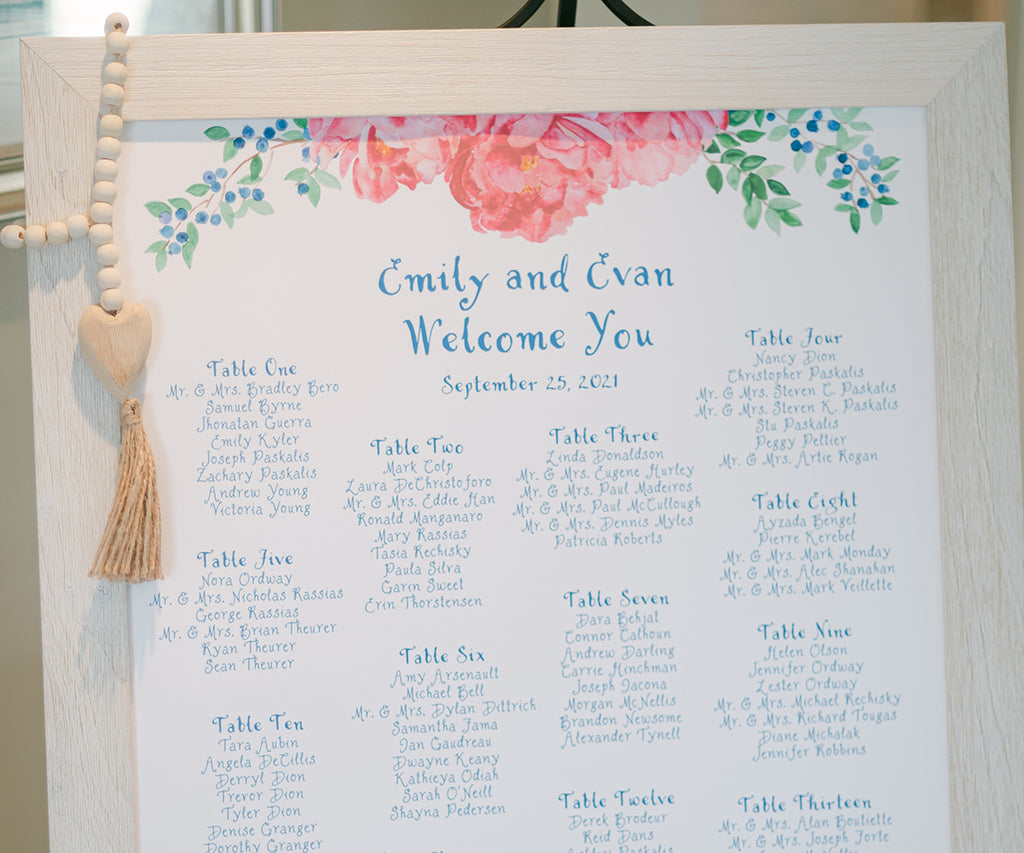 Emily and Evan
Welcome You
September 25, 2021
Table One
Mr. & Mrs. Bradley Bero
Samuel Byrne
Jhonatan Guerra
Emily Kyler
Joseph Paskalis
Zachary Paskalis
Andrew Young
Victoria Young
Table Two
Mark Colp
Laura DeChristoforo
Mr. & Mrs. Eddie Han
Ronald Manganaro
Mary Rassias
Tasia Rechisky
Paula Silva
Garin Sweet
Erin Thorstensen
Table Three
Linda Donaldson
Mr. & Mrs. Eugene Hurley
Mr. & Mrs. Paul Madeiros
Mr. & Mrs. Paul McCullough
Mr. & Mrs. Dennis Myles
Patricia Roberts
Table Four
Nancy Dion
Christopher Paskalis
Mr. & Mrs. Steven C. Paskalis
Mr. & Mrs. Steven K. Paskalis
Stu Paskalis
Peggy Peltier
Mr. & Mrs. Artie Rogan
Table Five
Nora Ordway
Mr. & Mrs. Nicholas Rassias
George Rassias
Mr. & Mrs. Brian Theurer
Ryan Theurer
Sean Theurer
Table Six
Amy Arsenault
Michael Bell
Mr. & Mrs. Dylan Dittrich
Samantha Fama
Jan Gaudreau
Dwayne Keany
Kathieya Odiah
Sarah O'Neill
Shayna Pedersen
Table Seven
Dara Behjat
Connor Calhoun
Andrew Darling
Carrie Hinchman
Joseph Iacona
Morgan McNellis
Brandon Newsome
Alexander Tynell
Table Eight
Ayzada Bengel
Pierre Kerebel
Mr. & Mrs. Mark Monday
Mr. & Mrs. Alec Shanahan
Mr. & Mrs. Mark Veillette
Table Nine
Helen Olson
Jennifer Ordway
Lester Ordway
Mr. & Mrs. Michael Rechisky
Mr. & Mrs. Richard Tougas
Diane Michalak
Jennifer Robbins
Table Ten
Tara Aubin
Angela DeCillis
Derryl Dion
Trevor Dion
Tyler Dion
Denise Granger
Dorothy Granger
Table Twelve
Derek Brodeur
Reid Dans
Ashley Paskalis
Table Thirteen
Mr. & Mrs. Alan Boutiette
Mr. & Mrs. Joseph Forte